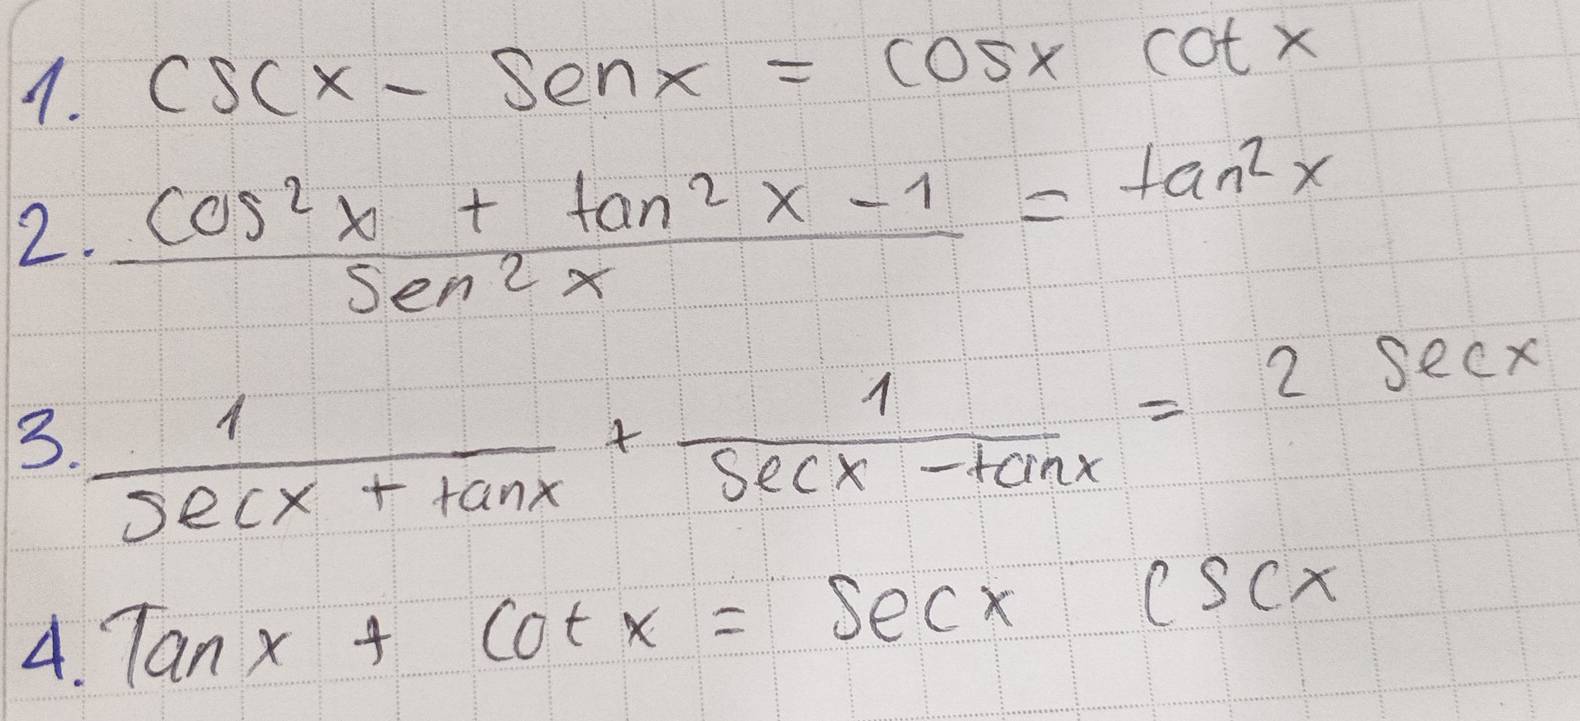 1. cscx - senx = cosx cotx
2. (cos²x + tan²x - 1) / sen²x = tan²x
3. 1 / (secx + tanx) + 1 / (secx - tanx) = 2 secx
4. Tanx + cotx = secx cscx